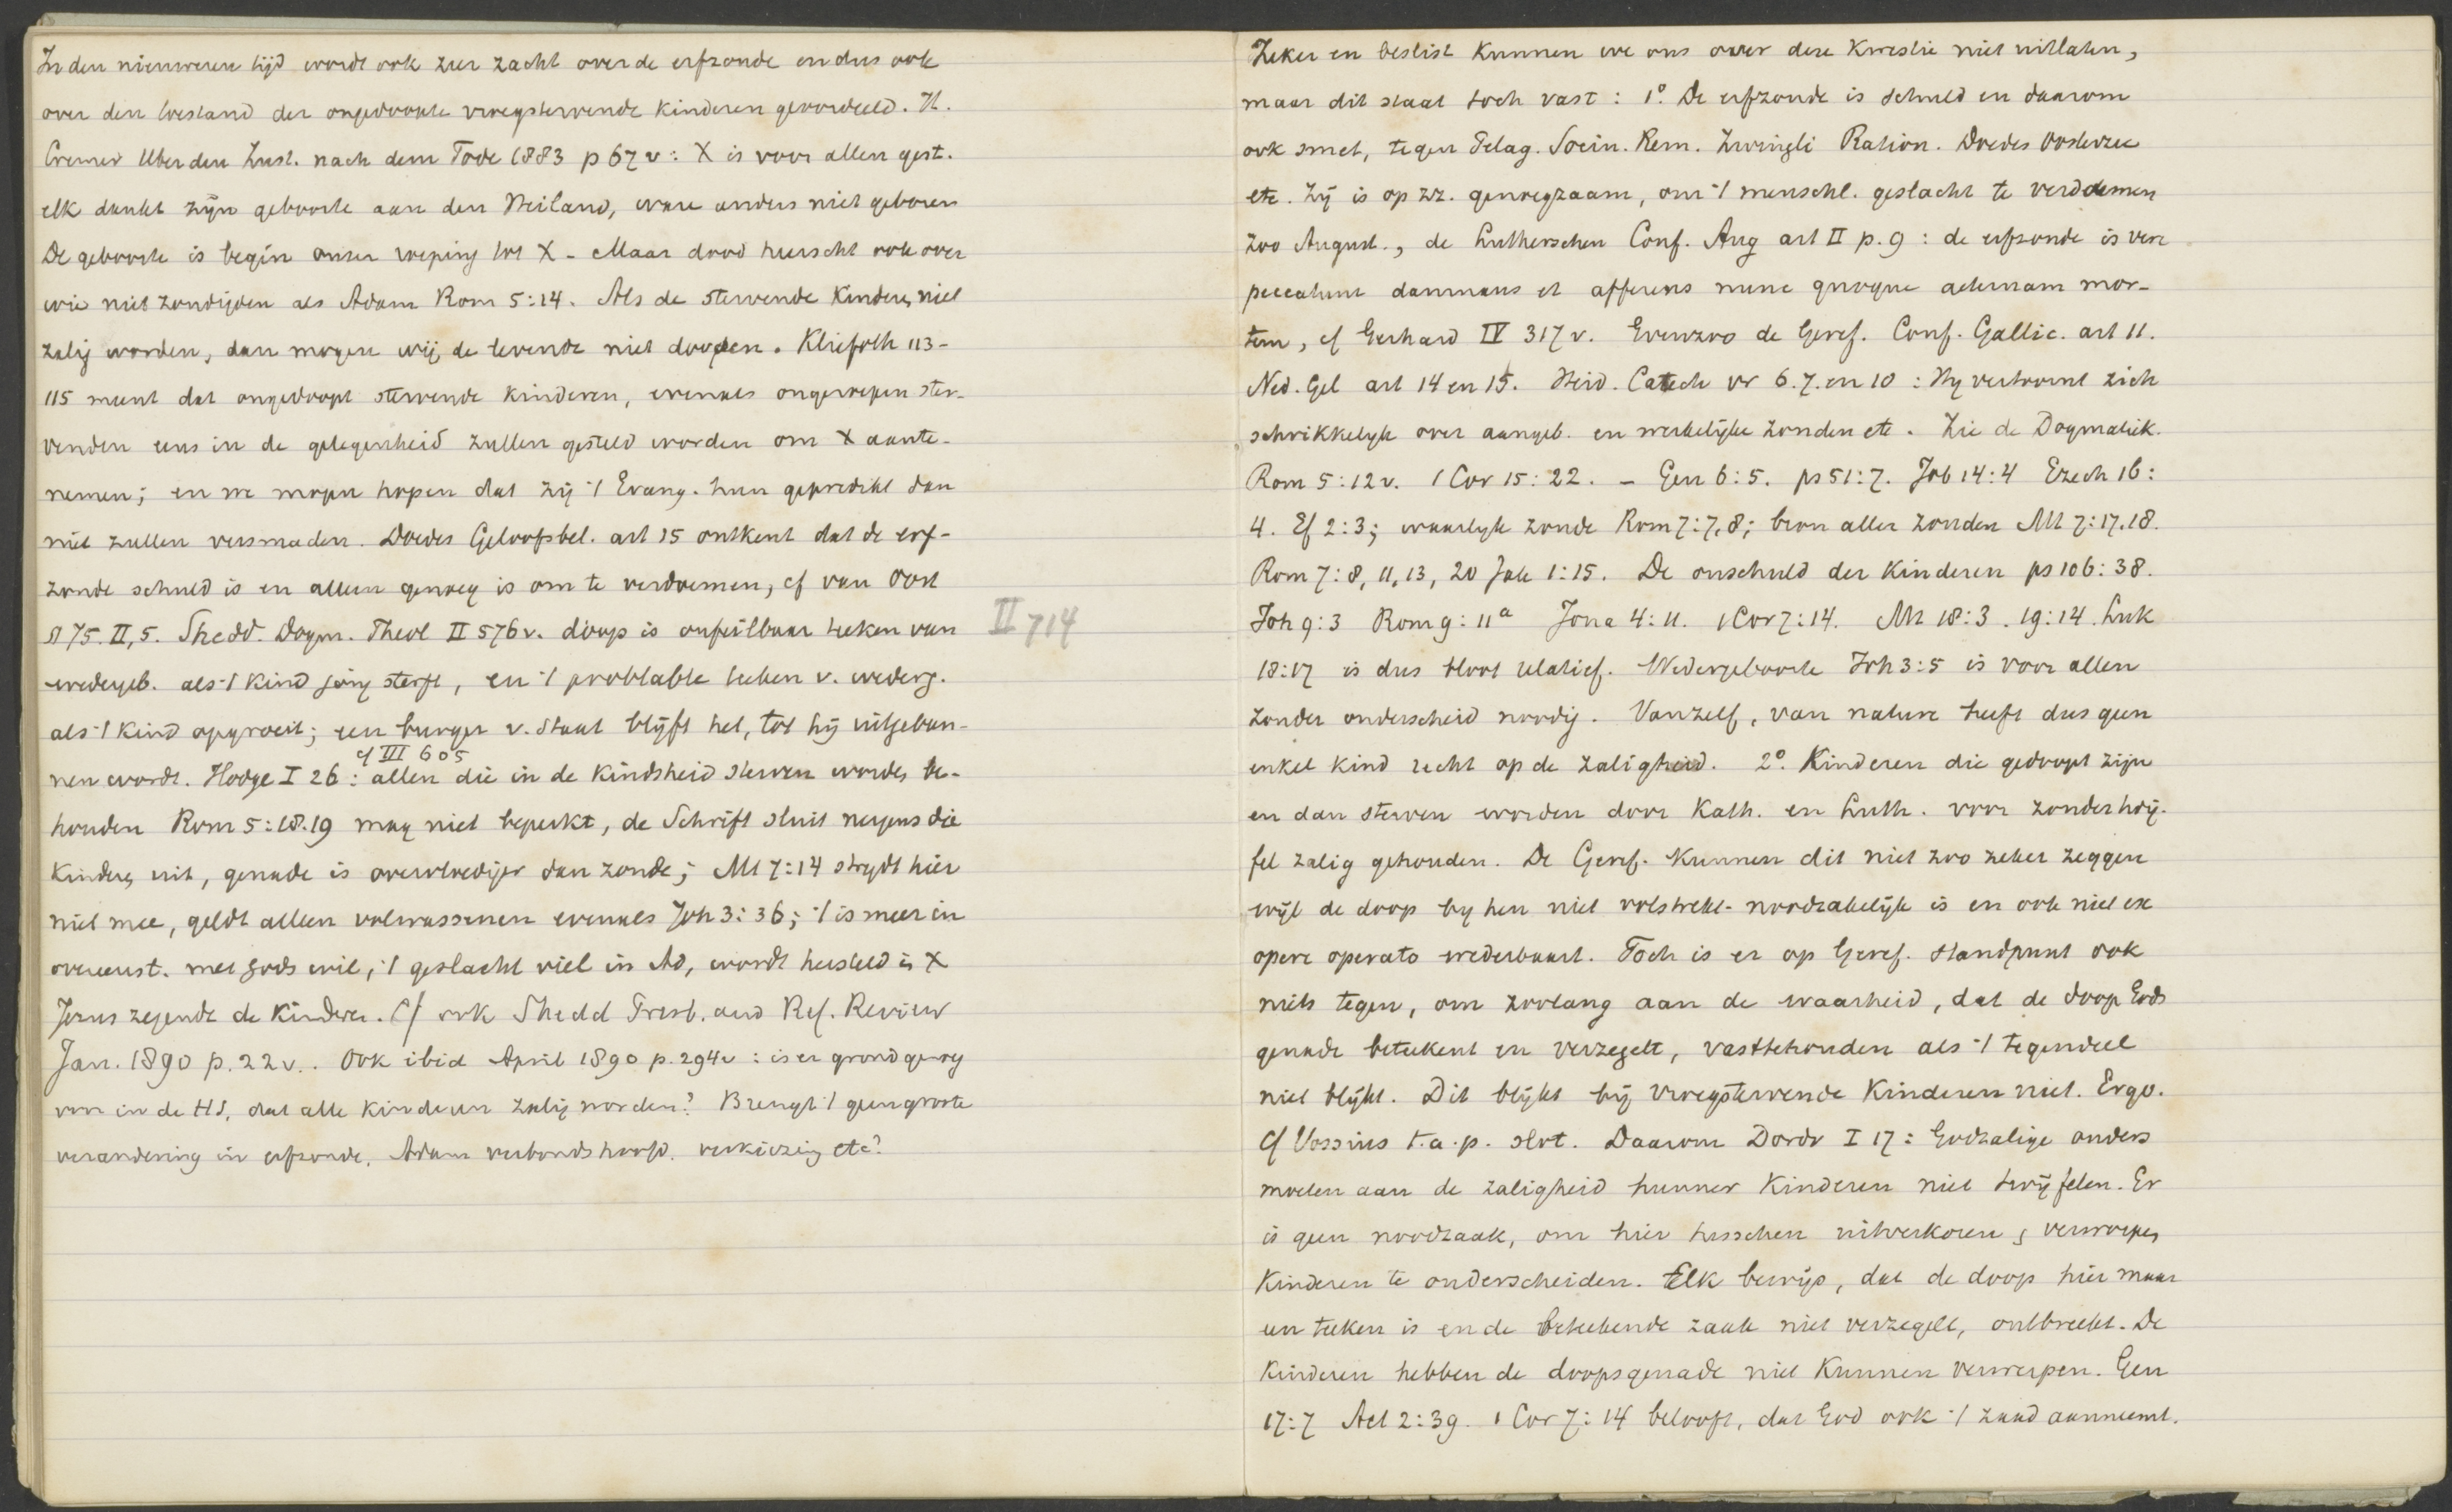 In den nieuweren tijd wordt ook zeer zacht over de erfzonde en dus ook
over den toestand der ongedoopte vroegstervende kinderen geoordeeld. H.
Cremer Uber den Zust. nach dem Tode 1883 p 67 v: X is voor allen gest.
elk dankt zijn geboorte aan den Heiland, ware anders niet geboren
De geboorte is begin onzer roeping tot X - Maar dood heerscht ook over
wie niet zondigden als Adam Rom 5:14. Als de stervende kinderen niet
zalig worden, dan mogen wij de levende niet doopen. Kliefoth 113-
115 meent dat ongedoopt stervende kinderen, evenals ongeroepen ster-
venden eens in de gelegenheid zullen gesteld worden om X aante-
nemen; en we mogen hopen dat zij 't Evang. hun gepredikt dan
niet zullen versmaden. Doedes Geloofsbel. art 15 ontkent dat de erf-
zonde schuld is en alleen genoeg is om te verdoemen, cf van Oost
§ 75. II, 5. Shedd. Dogm. Theol II 576 v. doop is onfeilbaar teeken van
wedergeb. als 't kind jong sterft, en 't probable teeken v. wederg.
als 't kind opgroeit; een burger v. Staat blijft het, tot hij uitgeban-
cf III 605
nen wordt. Hodge I 26: allen die in de kindsheid sterven worden be-
houden Rom 5:18.19 mag niet beperkt, de Schrift sluit nergens die
kinderen uit, genade is overvloediger dan zonde; Mt 7:14 strydt hier
niet mee, geldt alleen volwassenen evenals Joh 3:36; 't is meer in
overeenst. met Gods wil, 't geslacht viel in Ad, wordt hersteld in X
Jezus zegende de kinderen. Cf ook Shedd Presb. and Ref. Review
Jan. 1890 p. 22 v.. Ook ibid April 1890 p. 294 v: is er grond genoeg
voor in de HS, dat alle kinderen zalig worden? Brengt 't geen groote
verandering in erfzonde, Adam verbondshoofd, verkiezing etc?
II 714
Zeker en beslist kunnen we ons over deze kwestie niet uitlaten,
maar dit staat toch vast: 1º. De erfzonde is schuld en daarom
ook smet, tegen Pelag. Socin. Rem. Zwingli Ration. Doedes Oosterzee
etc. Zij is op zz. genoegzaam, om 't menschl. geslacht te verdoemen
zoo August., de Lutherschen Conf. Aug art II p. 9: de erfzonde is vere
peccatum damnans et afferens nunc quoque aeternam mor-
tem, cf Gerhard IV 317 v. Evenzoo de Geref. Conf. Gallic. art 11.
Ned. Gel art 14 en 15. Heid. Catech vr 6.7. en 10: Hy vertoornt zich
schrikkelyk over aangeb. en werkelijke zonden etc. Zie de Dogmatiek.
Rom 5:12 v. 1 Cor 15:22. - Gen 6:5. ps 51:7. Job 14:4 Ezech 16:
4. Ef 2:3; waarlyk zonde Rom 7:7,8; bron aller zonden Mt 7:17.18.
Rom 7:8, 11, 13, 20 Jak 1:15. De onschuld der kinderen ps 106:38.
Joh 9:3 Rom 9:11a Jona 4:11. 1 Cor 7:14. Mt 18:3. 19:14. Luk
18:17 is dus bloot relatief. Wedergeboorte Joh 3:5 is voor allen
zonder onderscheid noodig. Vanzelf, van nature heeft dus geen
enkel kind recht op de zaligheid. 2º. Kinderen die gedoopt zijn
en dan sterven worden door Kath. en Luth. voor zonder twij-
fel zalig gehouden. De Geref. kunnen dit niet zoo zeker zeggen
wijl de doop by hen niet volstrekt-noodzakelijk is en ook niet ex
opere operato wederbaart. Toch is er op Geref. standpunt ook
niets tegen, om zoolang aan de waarheid, dat de doop Gods
genade beteekent en verzegelt, vasttehouden als 't tegendeel
niet blykt. Dit blykt bij vroegstervende kinderen niet. Ergo.
Cf Vossius t.a.p. slot. Daarom Dordr I 17: Godzalige ouders
moeten aan de zaligheid hunner kinderen niet twijfelen. Er
is geen noodzaak, om hier tusschen uitverkoren en verworpen
kinderen te onderscheiden. Elk bewijs, dat de doop hier maar
een teeken is en de beteekende zaak niet verzegelt, ontbreekt. De
kinderen hebben de doopsgenade niet kunnen verwerpen. Gen
17:7 Act 2:39. 1 Cor 7:14 belooft, dat God ook 't zaad aanneemt.